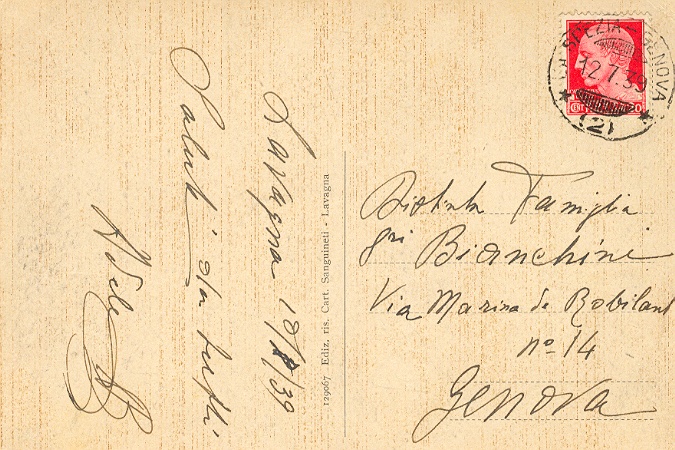 Lavagna 12/7/39
Saluti da tutti
129067 Ediz. ris. Cart. Sanguineti - Lavagna
LA SPEZIA - GENOVA
12.7.39
(2)
Distinta Famiglia
Bianchini
Via Marina de Robilant
n° 14
Genova